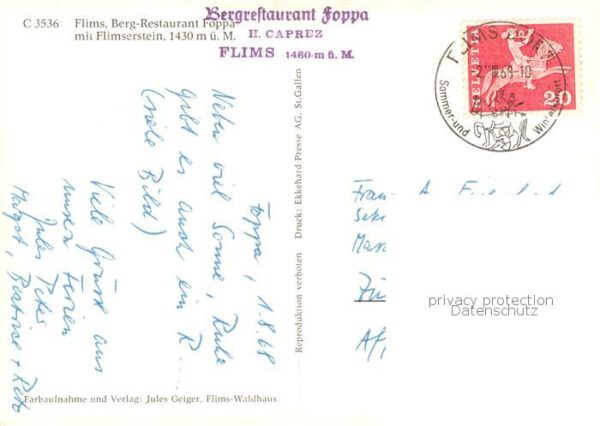 C 3536 Flims, Berg-Restaurant Foppa
mit Flimserstein, 1430 m ü. M.
Bergrestaurant Foppa
H. CAPREZ
FLIMS 1460 m ü. M.
HELVETIA
20
FLIMS DORF
69-10
Sommer- und Winterkurort
Foppa, 1.8.68
Neben viel Sonne, Ruhe
gibt es auch ein R....
(siehe Bild)
Viele Grüsse aus
unsern Ferien
Jules Peter
Margot, Beatrice + Reto
Reproduktion verboten Druck: Ekkehard-Presse AG, St. Gallen
Frau A
Sek
Farbaufnahme und Verlag: Jules Geiger, Flims-Waldhaus
privacy protection
Datenschutz